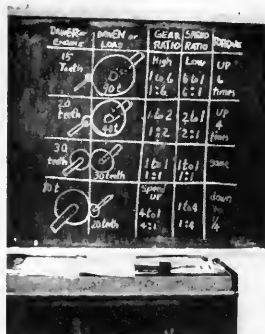 DRIVER or ENGINE DRIVEN or LOAD GEAR RATIO SPEED RATIO TORQUE
15 Teeth 90t High 1 to 6 1:6 Low 6 to 1 6:1 UP 6 times
20 teeth 1 to 2 1:2 2 to 1 2:1 UP times
30 teeth 30 teeth 1 to 1 1:1 1 to 1 1:1 same
20 teeth Speed UP 4 to 1 4:1 1 to 4 1:4 down 4